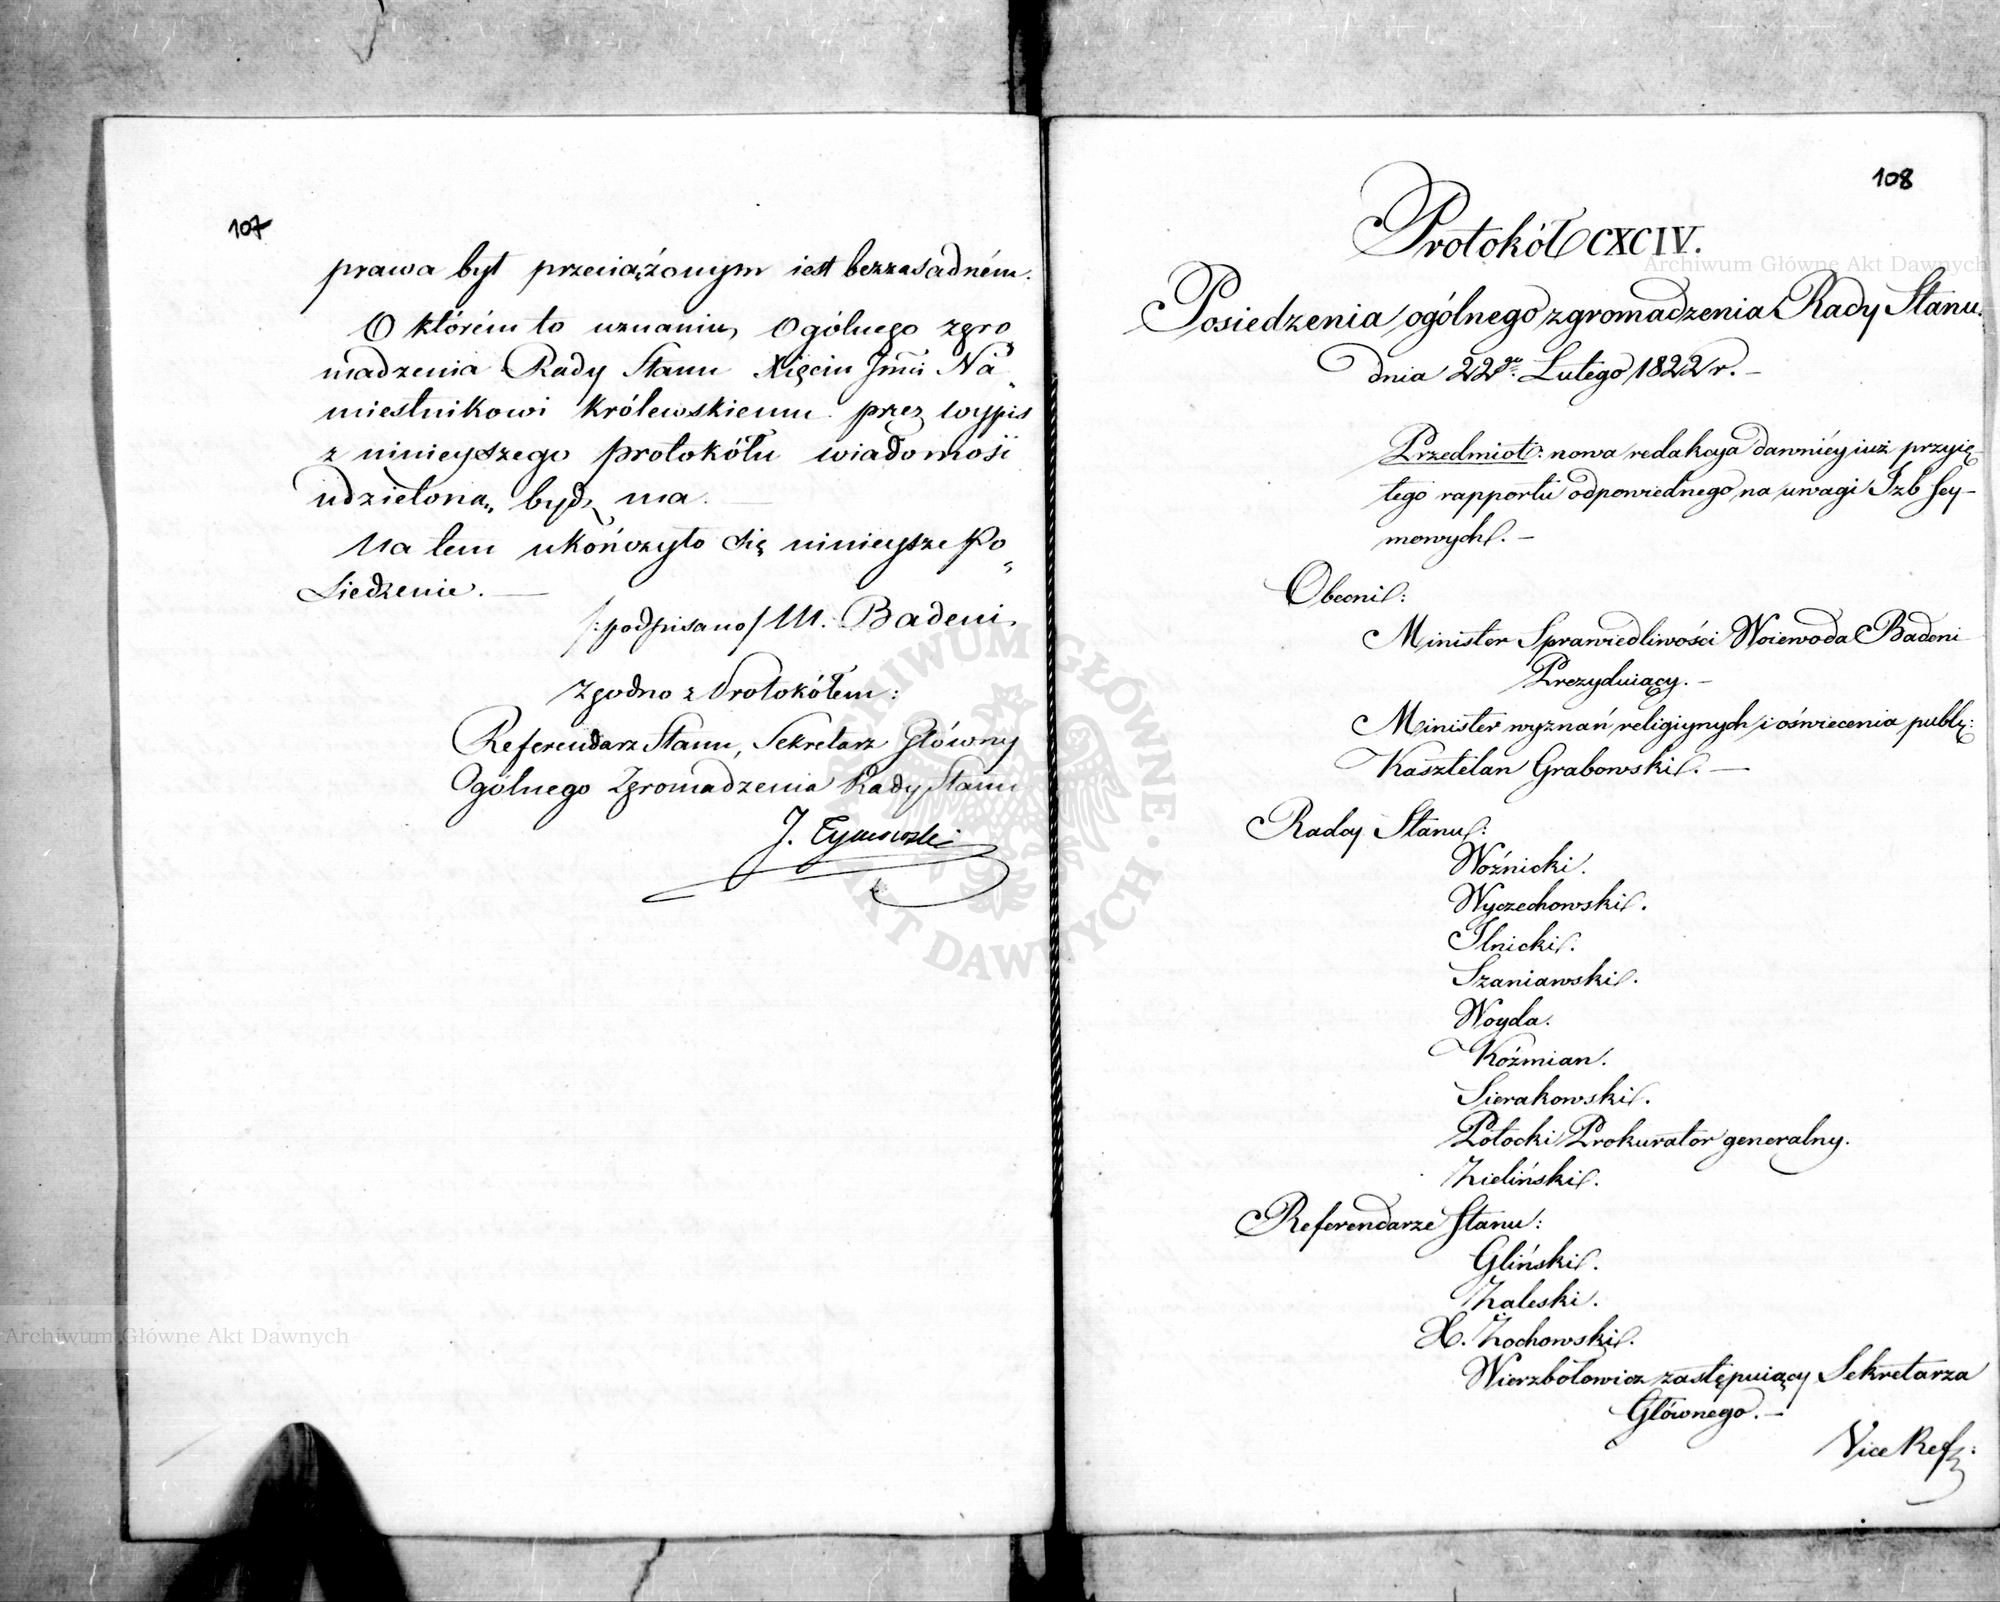 107
prawa był przeciążonym iest bezzasadném.
O którém to uznaniu, Ogólnego zgro„
madzenia Rady Stanu Xięciu Jmci Na„
miestnikowi Królewskiemu przez wypis
z ninieyszego protokółu wiadomość
udzieloną bydź ma.
Na tem ukończyło się ninieysze Po„
siedzenie. —
/:podpisano/ M. Badeni.
Zgodno z Protokółem:
Referendarz Stanu, Sekretarz Główny
Ogólnego Zgromadzenia Rady Stanu
J. Tymowski
108
Protokół CXCIV.
Posiedzenia ogólnego zgromadzenia Rady Stanu.
dnia 22go Lutego 1822 r. —
Przedmiot: nowa redakcya dawniéy iuż przyię-
tego rapportu odpowiednego na uwagi Izb Sey-
mowych. —
Obecni:
Minister Sprawiedliwości Woiewoda Badeni
Prezyduiący. —
Minister wyznań religiynych i oświecenia publ:
Kasztelan Grabowski. —
Radcy Stanu:
Woźnicki.
Wyczechowski.
Ilnicki.
Szaniawski.
Woyda.
Koźmian.
Sierakowski.
Potocki Prokurator generalny.
Zieliński.
Referendarze Stanu:
Gliński.
Zaleski.
X. Żochowski.
Wierzbołowicz zastępuiący Sekretarza
Głównego. —
Vice Ref:
Archiwum Główne Akt Dawnych
Archiwum Główne Akt Dawnych
ARCHIWUM GŁÓWNE AKT DAWNYCH